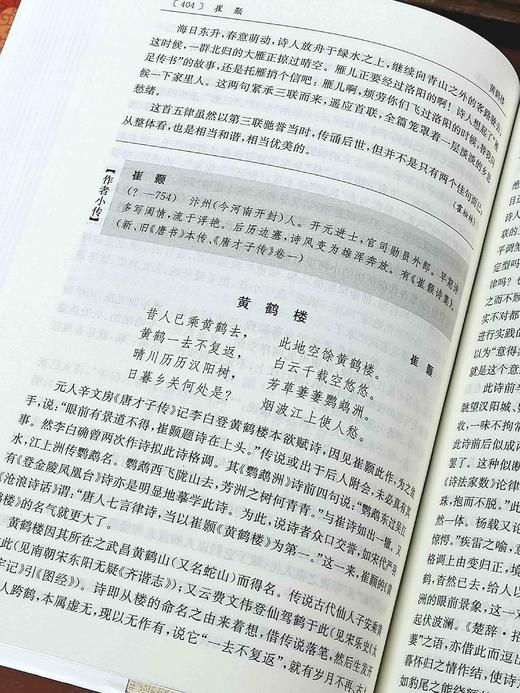 〔404〕 崔 颢
海日东升，春意萌动，诗人放舟于绿水之上，继续向青山之外的客路驶去。
这时候，一群北归的大雁正掠过晴空。雁儿正要经过洛阳的啊！诗人想起了“雁
足传书”的故事，还是托雁捎个信吧：雁儿啊，烦劳你们飞过洛阳的时候，替我问
候一下家里人。这两句紧承三联而来，遥应首联，全篇笼罩着一层淡淡的乡思
愁绪。
这首五律虽然以第三联驰誉当时，传诵后世，但并不是只有两个佳句而已，
从整体看，也是相当和谐，相当优美的。
（霍松林）
【作者小传】
崔 颢
（？—754） 汴州（今河南开封）人。开元进士，官司勋员外郎。早期诗
多写闺情，流于浮艳。后历边塞，诗风变为雄浑奔放。有《崔颢诗集》。
（新、旧《唐书》本传、《唐才子传》卷一）
黄 鹤 楼
崔 颢
昔人已乘黄鹤去， 此地空馀黄鹤楼。
黄鹤一去不复返， 白云千载空悠悠。
晴川历历汉阳树， 芳草萋萋鹦鹉洲。
日暮乡关何处是？ 烟波江上使人愁。
元人辛文房《唐才子传》记李白登黄鹤楼本欲赋诗，因见崔颢此作，为之敛
手，说：“眼前有景道不得，崔颢题诗在上头。”传说或出于后人附会，未必真有其
事。然李白确曾两次作诗拟此诗格调。其《鹦鹉洲》诗前四句说：“鹦鹉东过吴江
水，江上洲传鹦鹉名。鹦鹉西飞陇山去，芳洲之树何青青。”与崔诗如出一辙。又
有《登金陵凤凰台》诗亦是明显地摹学此诗。为此，说诗者众口交誉，如宋代严羽
《沧浪诗话》谓：“唐人七言律诗，当以崔颢《黄鹤楼》为第一。”这一来，崔颢的《黄
鹤楼》的名气就更大了。
黄鹤楼因其所在之武昌黄鹤山（又名蛇山）而得名。传说古代仙人子安乘黄
此（见南朝宋东阳无疑《齐谐志》）；又云费文伟登仙驾鹤于此（见宋乐史《太
宇记》引《图经》）。诗即从楼的命名之由来着想，借传说落笔，然后生发开
人跨鹤，本属虚无，现以无作有，说它“一去不复返”，就有岁月不再、
黄鹤楼